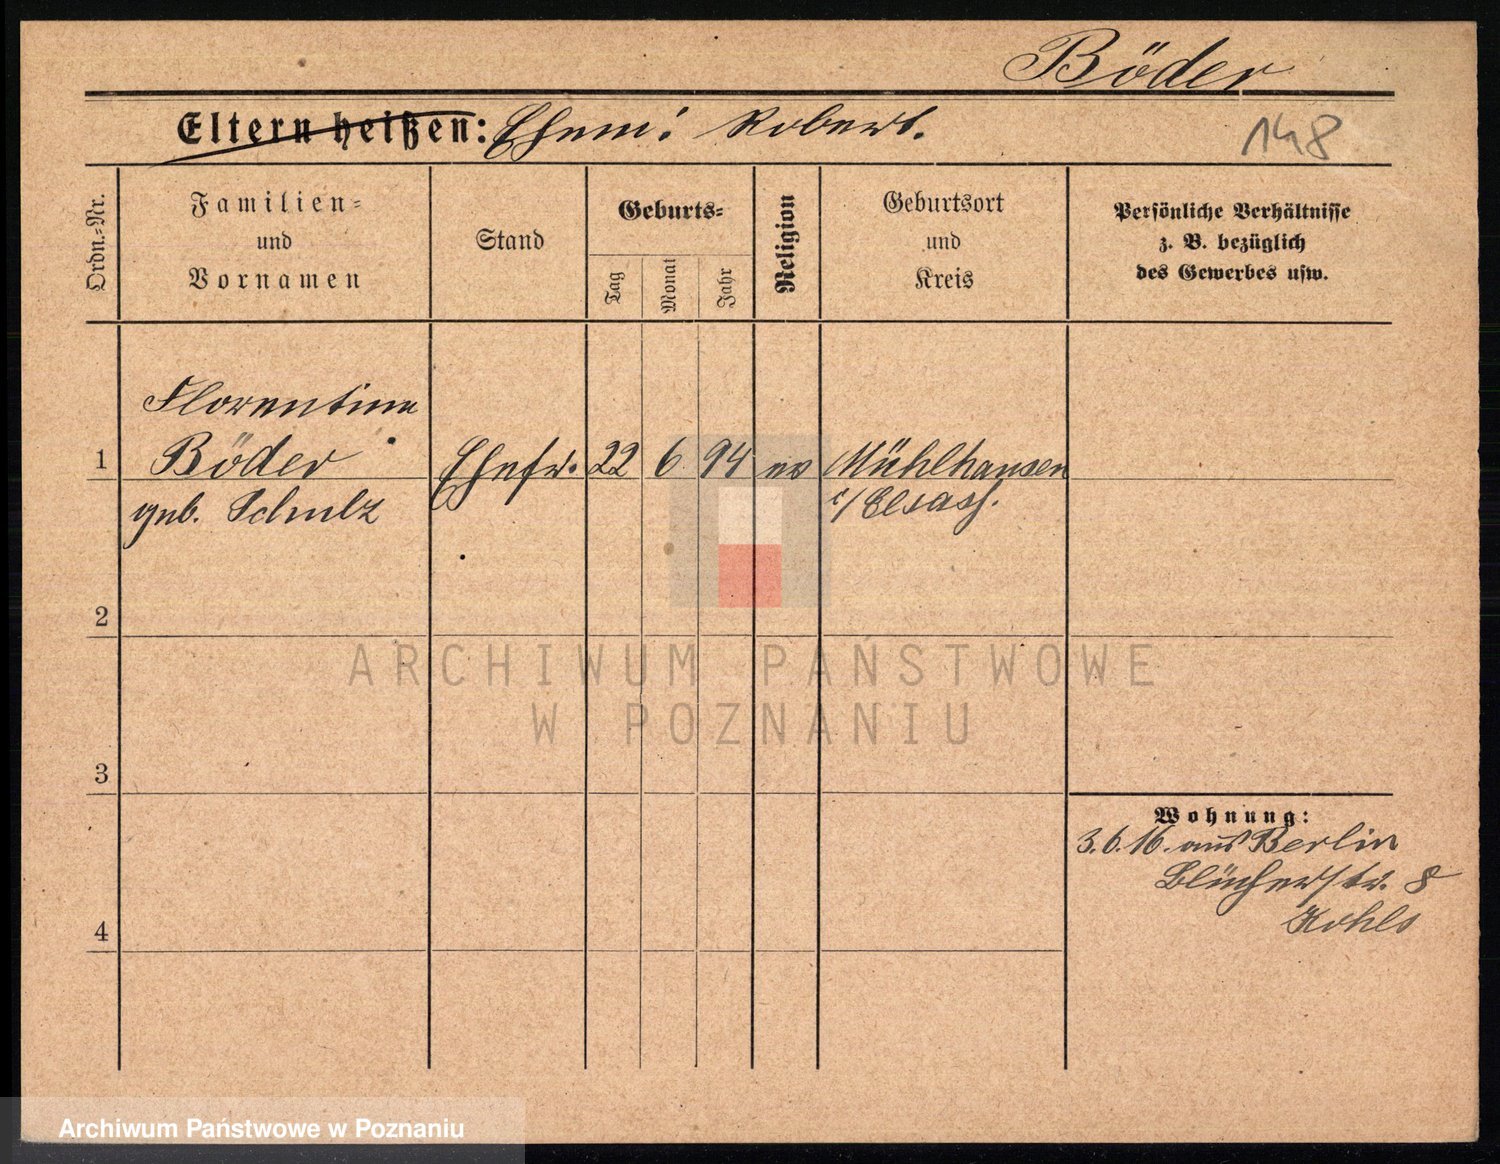 Böder
Eltern heißen: Ehem: Robert.
148
Ordn.=Nr.
Familien=
und
Vornamen
Stand
Geburts=
Tag
Monat
Jahr
Religion
Geburtsort
und
Kreis
Persönliche Verhältnisse
z. B. bezüglich
des Gewerbes usw.
Florentine
1 Böder Ehefr. 22 6 94 ev Mühlhausen
geb. Schulz i/Elsass.
2
ARCHIWUM PAŃSTWOWE
W POZNANIU
3
Wohnung:
3.6.16. aus Berlin
Blücherstr. 8
Kohls
4
Archiwum Państwowe w Poznaniu